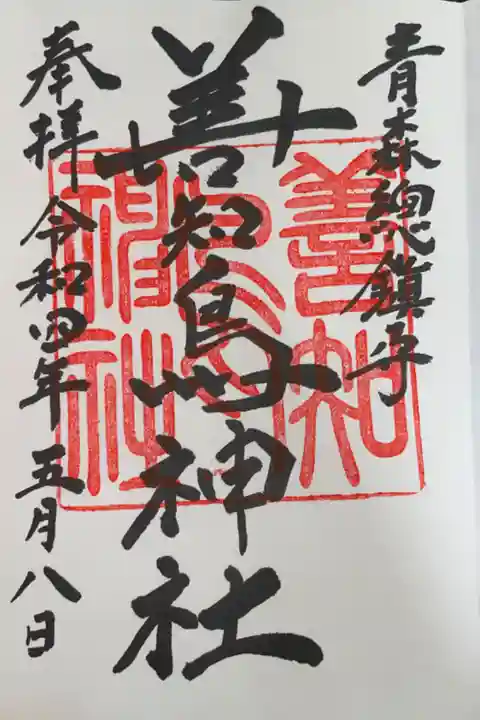 青森總鎮守
善知鳥神社
奉拝 令和四年 五月八日
善知
鳥
神社